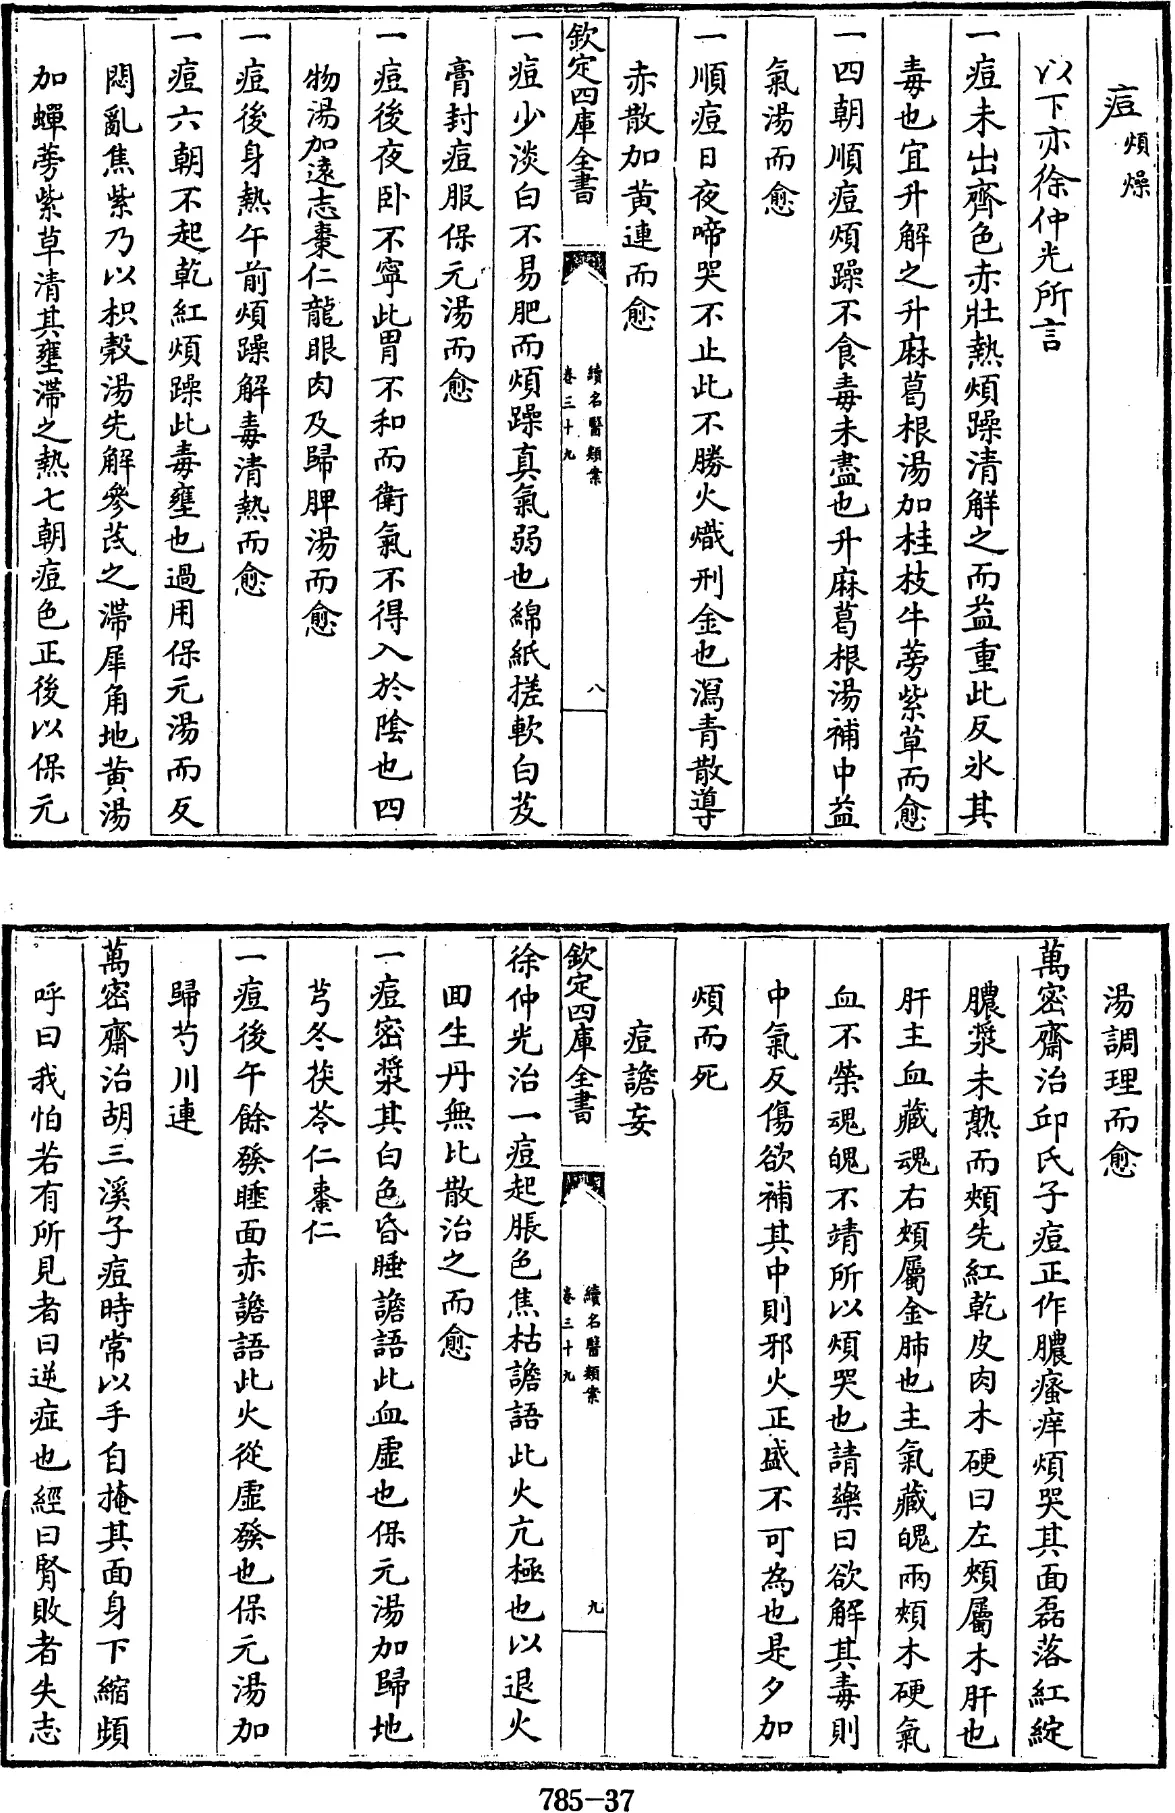 痘煩燥
以下亦徐仲光所言
一痘未出齊色赤壯熱煩躁清解之而益重此反氷其
毒也宜升解之升麻葛根湯加桂枝牛蒡紫草而愈
一四朝順痘煩躁不食毒未盡也升麻葛根湯補中益
氣湯而愈
一順痘日夜啼哭不止此不勝火熾刑金也瀉青散導
赤散加黄連而愈
欽定四庫全書
續名醫類案
卷三十九
八
一痘少淡白不易肥而煩躁真氣弱也綿紙搓軟白芨
膏封痘服保元湯而愈
一痘後夜卧不寧此胃不和而衛氣不得入於陰也四
物湯加遠志棗仁龍眼肉及歸脾湯而愈
一痘後身熱午前煩躁解毒清熱而愈
一痘六朝不起乾紅煩躁此毒壅也過用保元湯而反
悶亂焦紫乃以枳殼湯先解參芪之滯犀角地黄湯
加蟬蒡紫草清其壅滯之熱七朝痘色正後以保元
湯調理而愈
萬密齋治邱氏子痘正作膿瘙痒煩哭其面磊落紅綻
膿漿未熟而頰先紅乾皮肉木硬曰左頰屬木肝也
肝主血藏魂右頰屬金肺也主氣藏魄兩頰木硬氣
血不榮魂魄不靖所以煩哭也請藥曰欲解其毒則
中氣反傷欲補其中則邪火正盛不可為也是夕加
煩而死
痘譫妄
欽定四庫全書
續名醫類案
卷三十九
九
徐仲光治一痘起脹色焦枯譫語此火亢極也以退火
回生丹無比散治之而愈
一痘密漿其白色昏睡譫語此血虛也保元湯加歸地
芎冬茯苓仁棗仁
一痘後午餘發睡面赤譫語此火從虛發也保元湯加
歸芍川連
萬密齋治胡三溪子痘時常以手自掩其面身下縮頻
呼曰我怕若有所見者曰逆症也經曰腎敗者失志
785-37